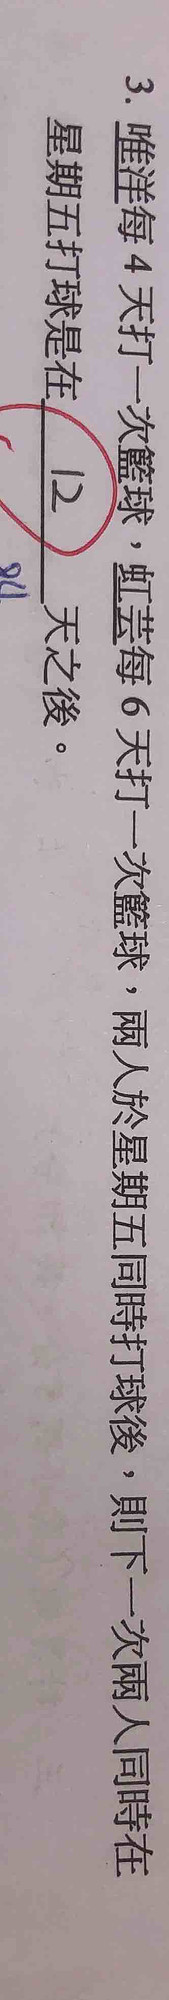 3. 唯洋每 4 天打一次籃球，虹芸每 6 天打一次籃球，兩人於星期五同時打球後，則下一次兩人同時在
星期五打球是在 12 天之後。
84